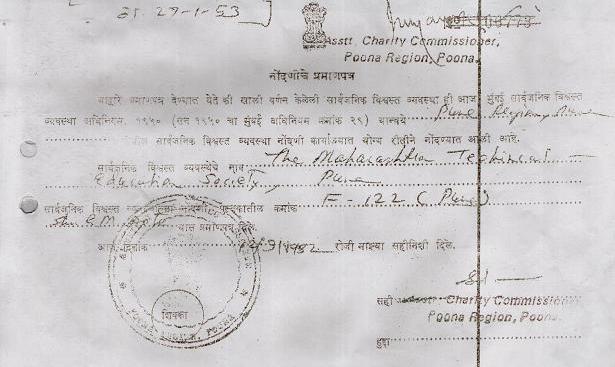 dt. 27-1-53
Asstt. Charity Commissioner,
Poona Region, Poona.
नोंदणीचे प्रमाणपत्र
याद्वारे प्रमाणपत्र देण्यात येते की खाली वर्णन केलेली सार्वजनिक विश्वस्त व्यवस्था ही आज मुंबई सार्वजनिक विश्वस्त
व्यवस्था अधिनियम, १९५० (सन १९५० चा मुंबई अधिनियम क्रमांक २९) यान्वये Pune Region, Pune
येथील सार्वजनिक विश्वस्त व्यवस्था नोंदणी कार्यालयात योग्य रीतीने नोंदण्यात आली आहे.
सार्वजनिक विश्वस्त व्यवस्थेचे नाव The Maharashtra Technical
Education Society, Pune
सार्वजनिक विश्वस्त क्रमांक F-122 (Pune)
Shri G.M. यांस प्रमाणपत्र दिले.
आज दिनांक 1982 रोजी माझ्या सहीनिशी दिले.
शिक्का
POONA REGION, POONA
Sd/-
सही Charity Commissioner
Poona Region, Poona.
हुद्दा